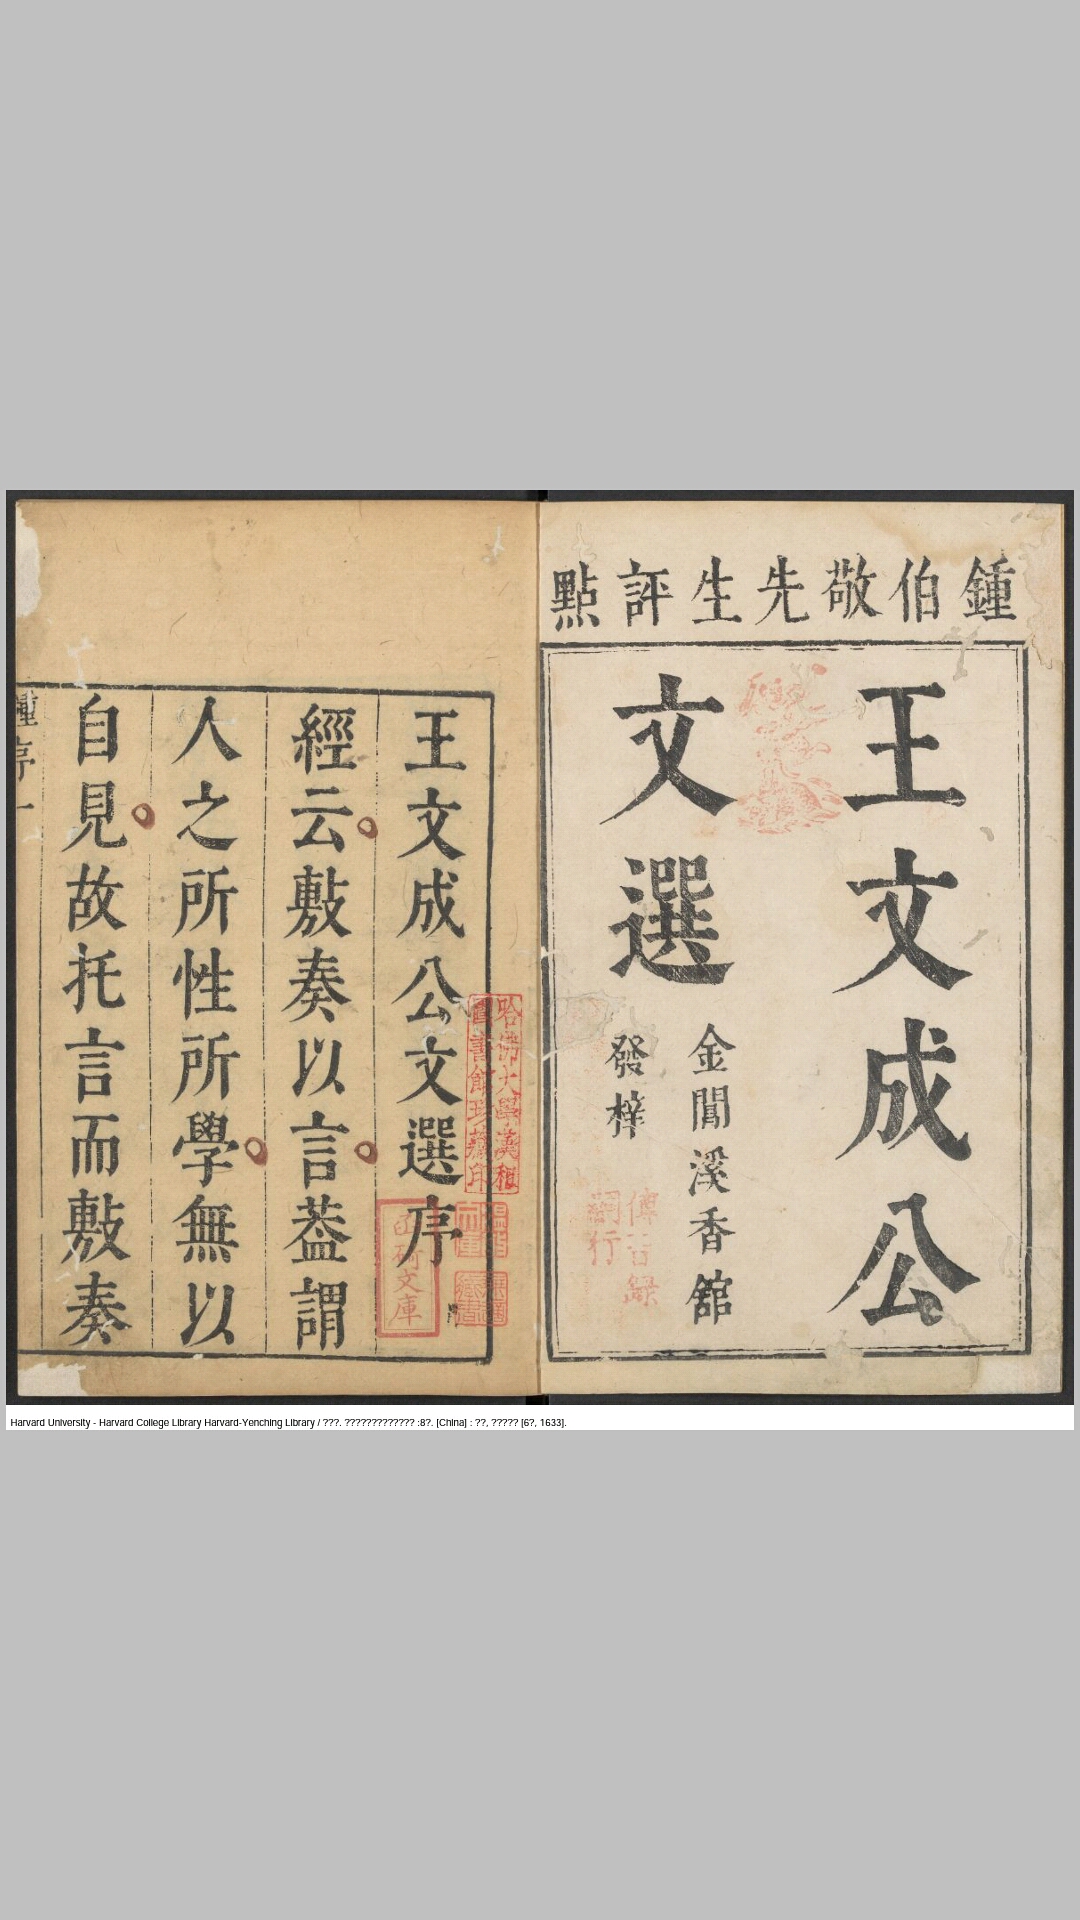 鍾伯敬先生評點
王文成公
文選
金閶溪香館
發梓
王文成公文選序
經云敷奏以言葢謂
人之所性所學無以
自見故托言而敷奏
鍾序一
哈佛大學漢和
圖書館珍藏印
Harvard University - Harvard College Library Harvard-Yenching Library / ???. ????????????? :8?. [China] : ??, ????? [6?, 1633].